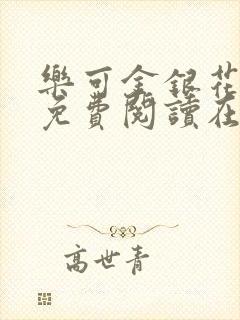 樂可金銀花
免費閱讀在
高世青